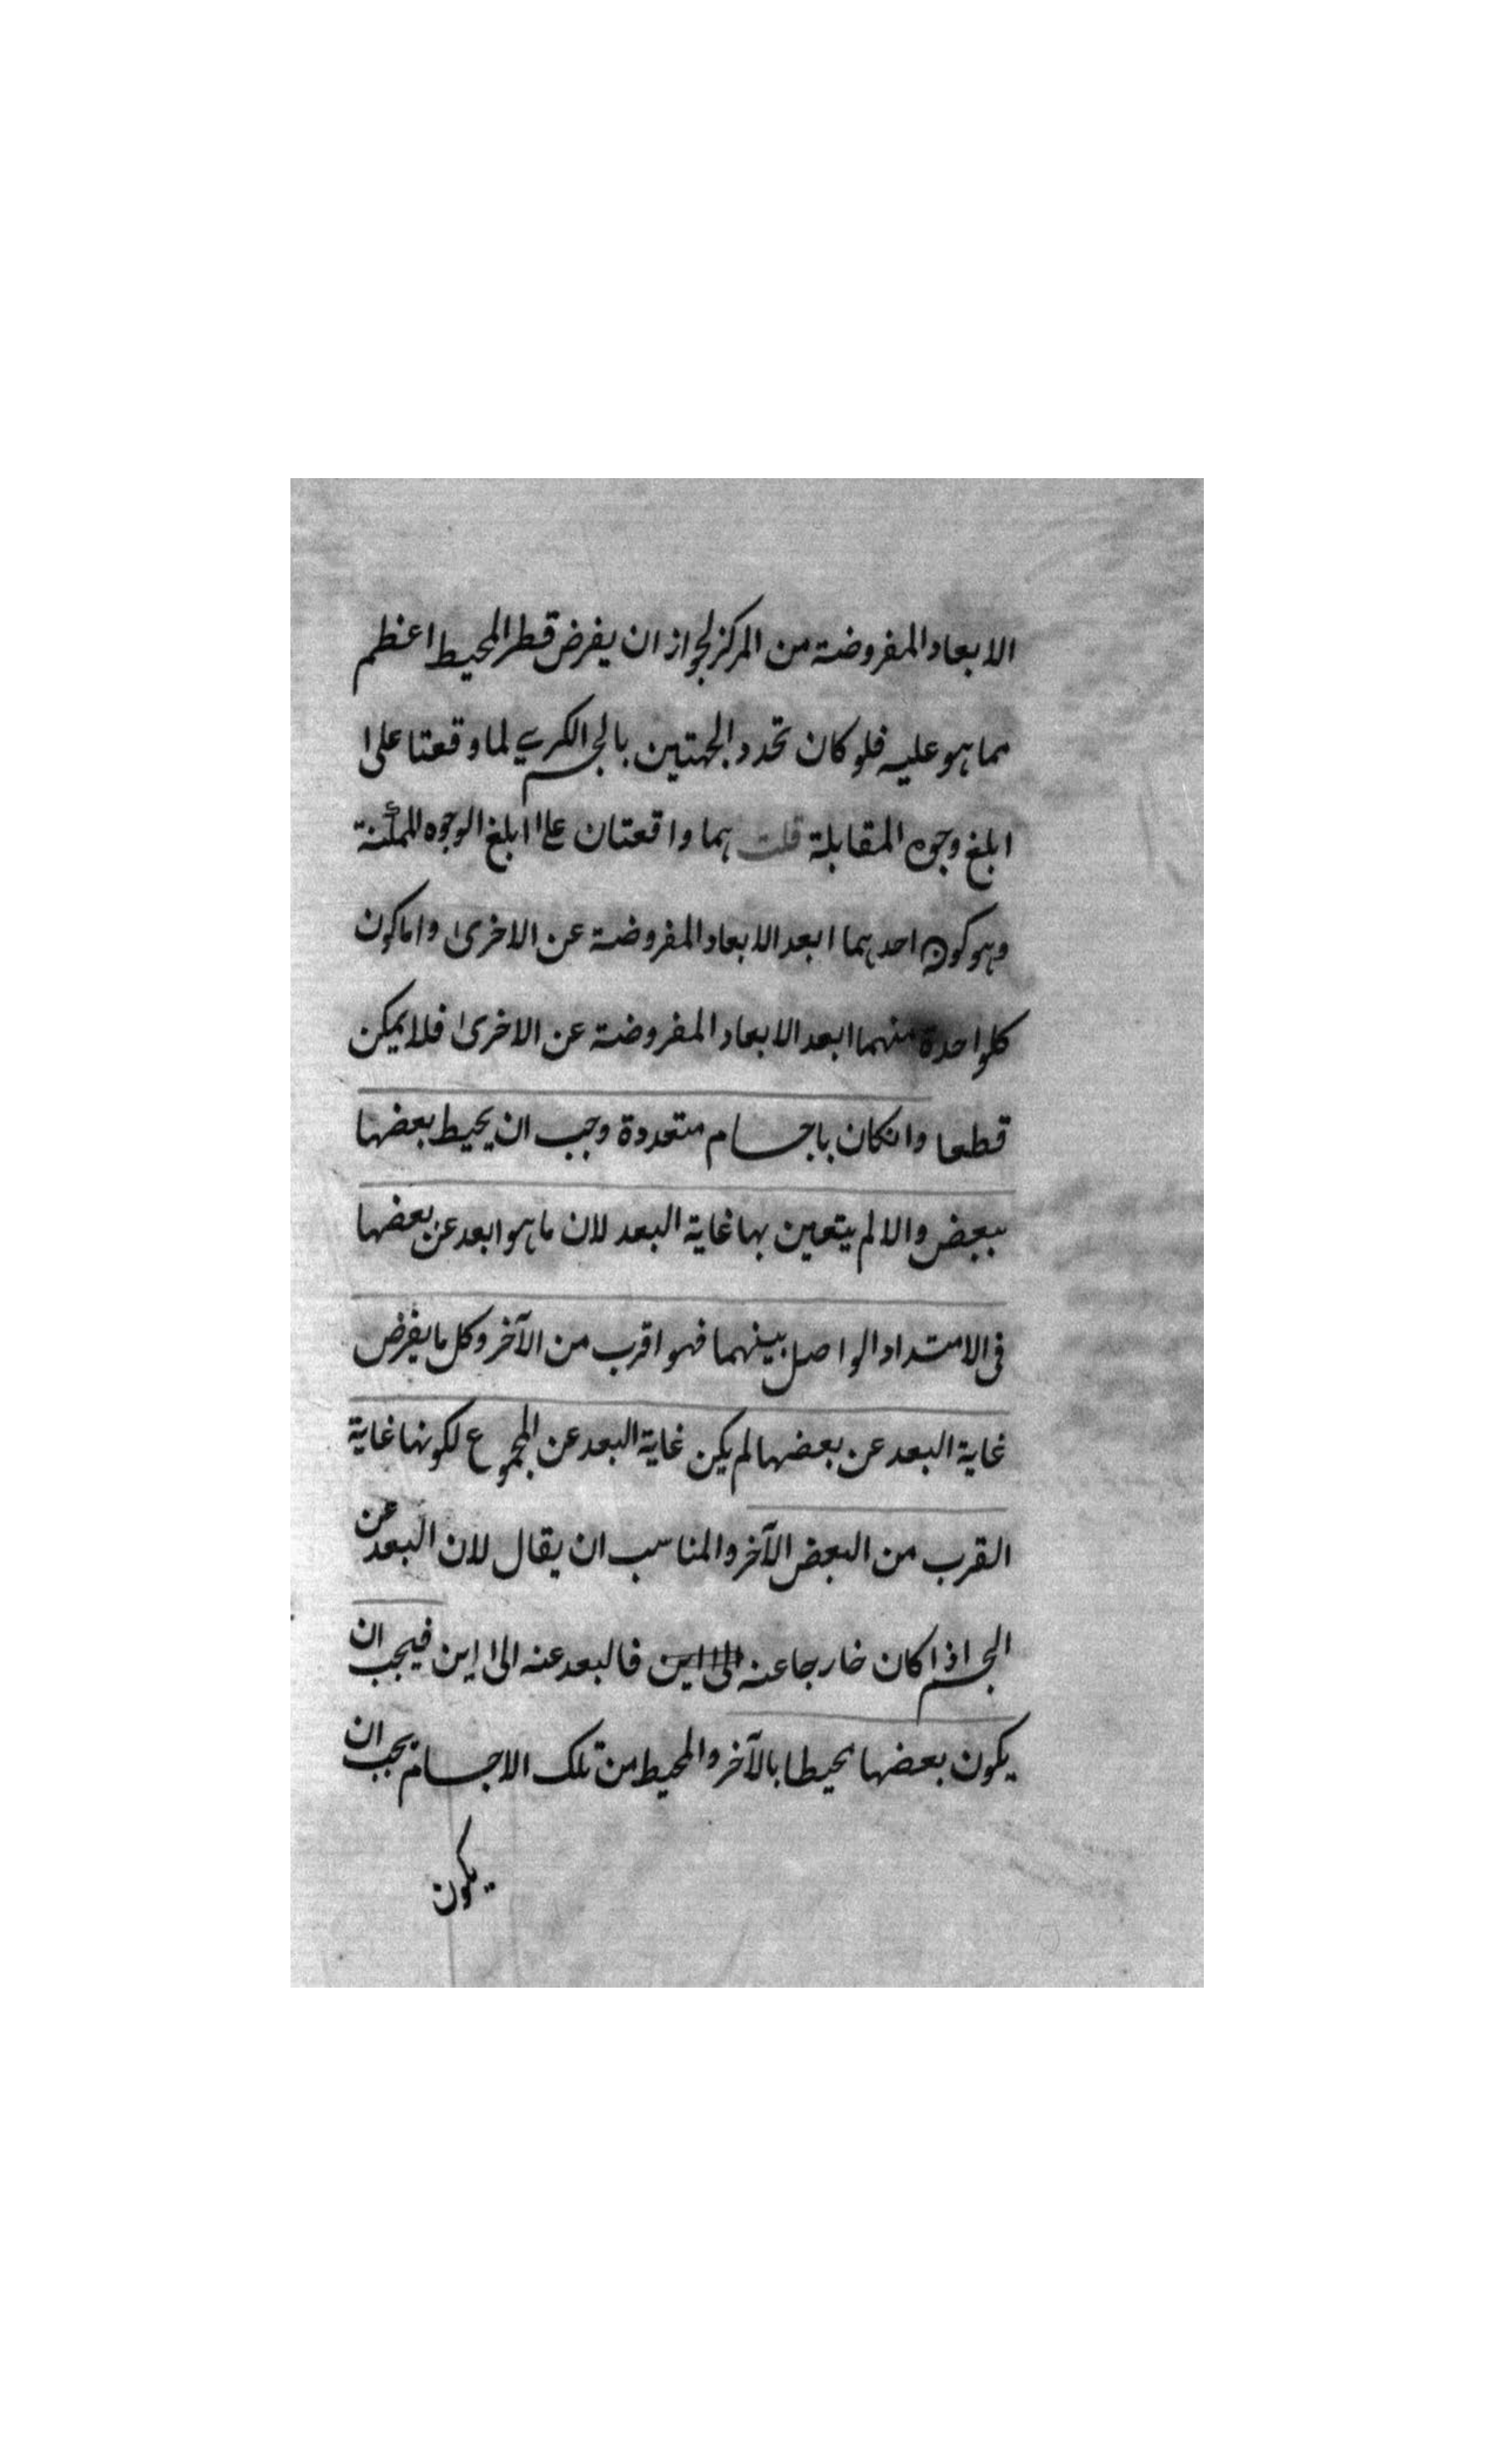 الابعاد المفروضة من المركز لجواز ان يفرض قطر المحيط اعظم
مما هو عليه فلو كان تحدد الجهتين بالجسم الكري لما وقعتا على
ابلغ وجوه المقابلة قلت هما واقعتان على ابلغ الوجوه الممكنة
وهو كون احدهما ابعد الابعاد المفروضة عن الاخرى واما كون
كلواحدة منهما ابعد الابعاد المفروضة عن الاخرى فلا يمكن
قطعا وانكان باجسام متعددة وجب ان يحيط بعضها
ببعض والا لم يتعين بها غاية البعد لان ما هو ابعد عن بعضها
فى الامتداد الواصل بينهما فهو اقرب من الآخر وكل ما يفرض
غاية البعد عن بعضها لم يكن غاية البعد عن المجموع لكونها غاية
القرب من البعض الآخر والمناسب ان يقال لان البعد عن
الجسم اذا كان خارجا عنه الى اين فالبعد عنه الى اين فيجب ان
يكون بعضها محيطا بالآخر والمحيط من تلك الاجسام يجب ان
يكون